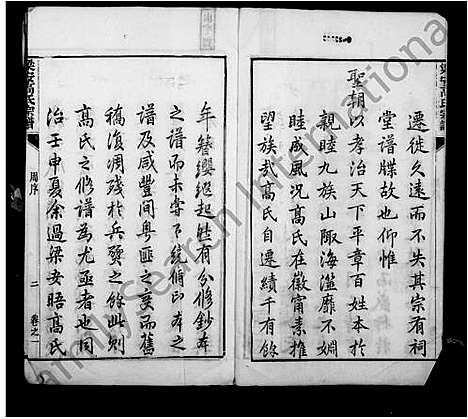 梁安高氏宗譜
遷徙久遠而不失其宗有祠
堂譜牒故也仰惟
聖朝以孝治天下平章百姓本於
親睦九族山陬海澨靡不婣
睦成風況高氏在徽甯素推
望族哉高氏自遷績千有餘
年簪纓繼起雖有分修鈔本
之譜而未嘗不統備印本之
譜及咸豐間粵匪之變而舊
稿復凋殘於兵燹之餘此則
高氏之修譜為尤亟者也同
治壬申夏余過梁安晤高氏
梁安高氏宗譜
周序
二
卷之一
Family Search International